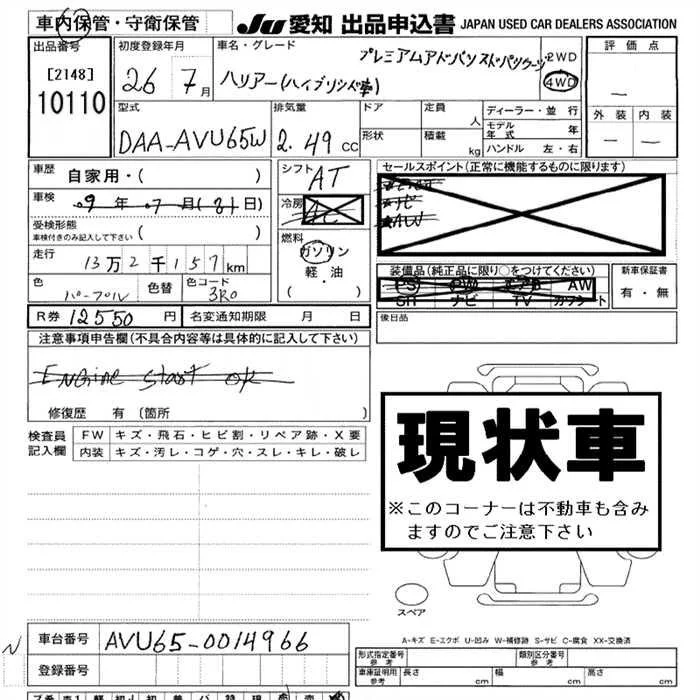 車内保管・守衛保管
JU 愛知 出品申込書 JAPAN USED CAR DEALERS ASSOCIATION
出品番号
[2148]
10110
初度登録年月
26 7月
車名・グレード
プレミアムアドバンスドパッケージ
ハリアー(ハイブリッド車)
2WD
4WD
評価点
—
外装 内装
— —
型式
DAA-AVU65W
排気量
2.49 CC
ドア
形状
定員
人
積載
kg
ディーラー・並行
モデル年式 年
ハンドル 左・右
車歴
自家用・( )
車検
9年 7月(31日)
受検形態
車検付きのみ記入して下さい ( )
走行
13万2千157km
色
パープル
色替
色コード
3R0
シフト
AT
冷房
AC
燃料
ガソリン
軽・油
( ・ )
セールスポイント(正常に機能するものに限ります)
ナビ
AW
装備品(純正品に限り○をつけてください)
PS PW エアB AW
SR ナビ TV カワシート
新車保証書
有・無
R券 12550円
名変通知期限 月 日
後日品
注意事項申告欄(不具合内容等は具体的に記入して下さい)
Engine start ok
修復歴 有 〔箇所 〕
検査員記入欄
FW キズ・飛石・ヒビ割・リペア跡・X要
内装 キズ・汚レ・コゲ・穴・スレ・キレ・破レ
現状車
※このコーナーは不動車も含み
ますのでご注意下さい
スペア
A-キズ E-エクボ U-凹み W-補修跡 S-サビ C-腐食 XX-交換済
N
車台番号
AVU65-0014966
登録番号
形式指定番号
参考
類別区分番号
参考
車庫証明用
参考
長さ cm
幅 cm
高さ cm